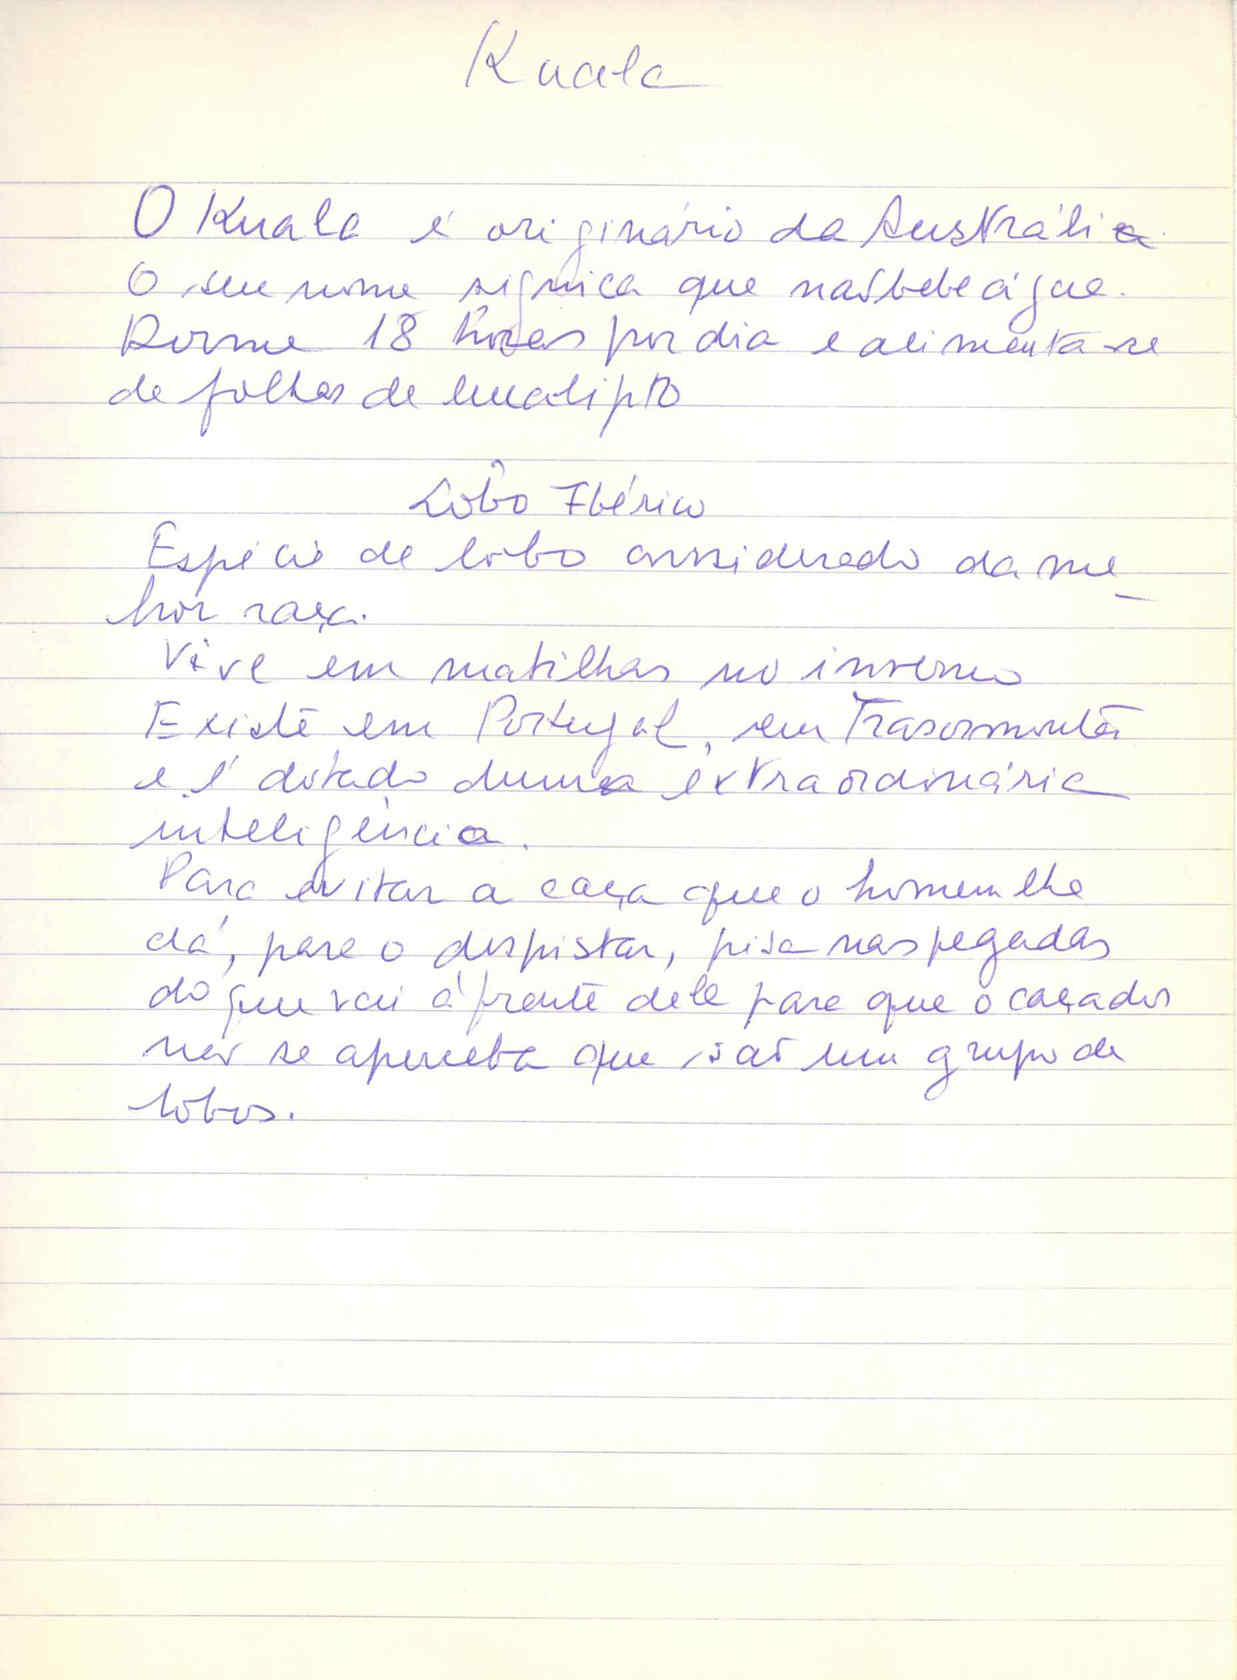 Kuala
O Kuala é originário da Austrália
O seu nome signica que não bebe água.
Dorme 18 horas por dia e alimenta-se
de folhas de eucalipto
Lôbo Ibérico
Espécie de lobo considerado da me_
lhor raça.
Vive em matilhas no inverno
Existe em Portugal, em Trasosmontes
e é dotado duma extraordinária
inteligência.
Para evitar a caça que o homem lhe
dá, para o despistar, pisa nas pegadas
do que vai á frente dele para que o caçador
não se aperceba que são um grupo de
lobos.